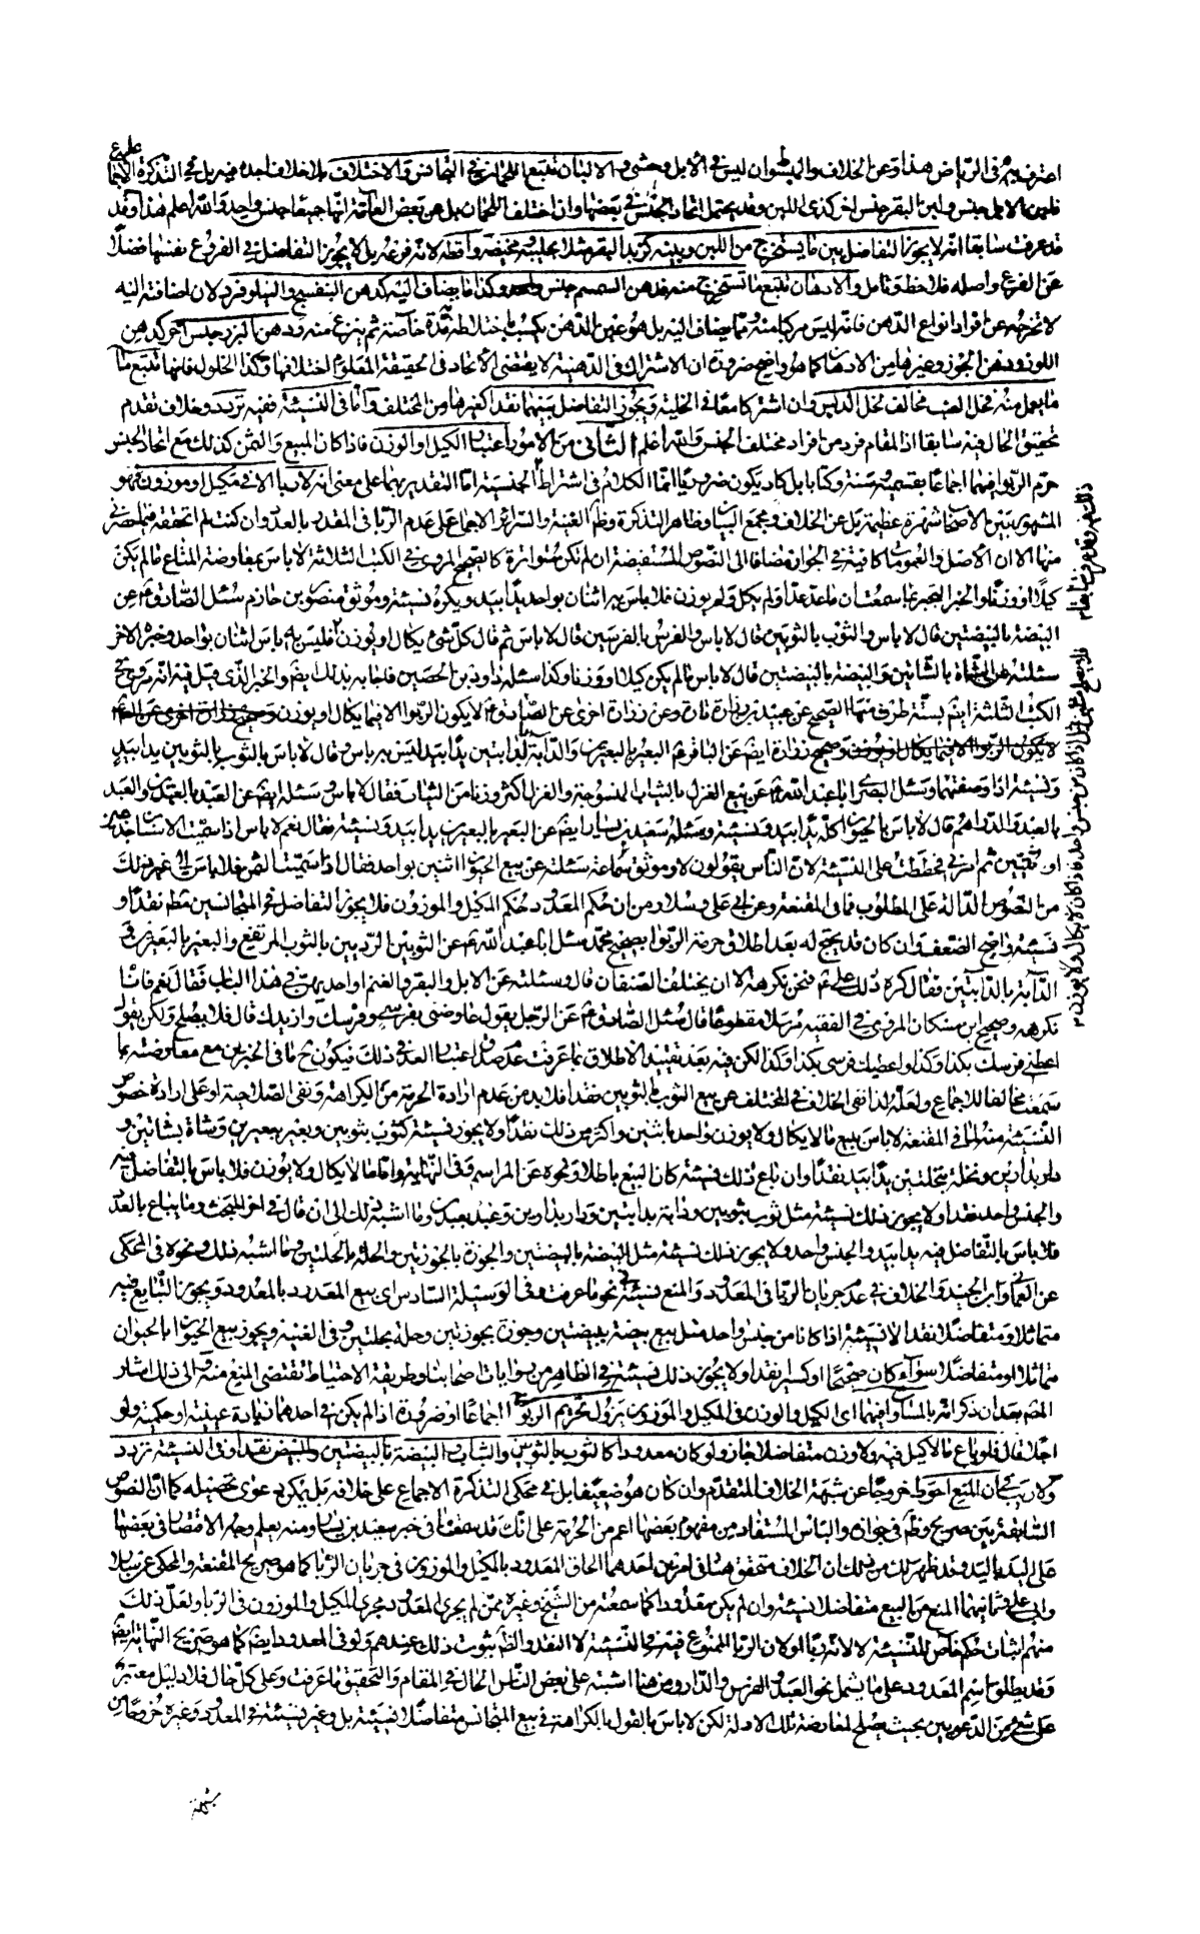 اعترف به فى الرياض هذا وعن الخلاف والمبسوط ان ليس فى الابل وحشى والالبان تتبع اللحمان فى التجانس والاختلاف بلا خلاف اجده فيه بل فى التذكرة الاجماع عليه
فلبن الابل جنس ولبن البقر جنس اخر كذى اللبن وقد يحتمل اتحاد الجنس فى بعضها وان اختلف اللحمان بل عن بعض العامة انها جميعا جنس واحد والله اعلم هذا وقد
قد عرفت سابقا انه لا يجوز التفاضل بين ما يستخرج من اللبن وبينه كزبد البقر مثلا بحليبه ومخيضه واقطه لانه فرعه بل لا يجوز التفاضل فى الفروع نفسها فضلا
عن الفرع واصله فلاحظ وتامل والادهان تتبع ما تستخرج منه فدهن السمسم جنس واحد وكذا ما يضاف اليه كدهن البنفسج والنيلوفر لان اضافته اليه
لا تخرجه عن افراد انواع الدهن فانه ليس مركبا منه مما يضاف اليه بل هو عين الدهن يكسب باختلاطه مدة خاصة ثم ينزع منه ودهن البزر جنس اخر كدهن
اللوز ودهن الجوز وغيرها من الادهان كما هو واضح ضرورة ان الاشتراك فى الدهنية لا يقتضى الاتحاد فى الحقيقة المعلوم اختلافها وكذا الخلول فانها تتبع ما
ما يعمل منه فخل العنب مخالف لخل الدبس وان اشتركا معا فى الخلية ويجوز التفاضل بينهما نقدا كغيرها من المختلف واما فى النسيئة ففيه تردد وخلاف تقدم
تحقيق الحال فيه سابقا اذ المقام فرد من افراد مختلف الجنس والله اعلم الثانى من الامور اعتبار الكيل او الوزن فاذا كان المبيع والثمن كذلك مع اتحاد الجنس
حرم الربوا فيهما اجماعا بقسميه وسنة وكتابا بل كاد يكون ضروريا انما الكلام فى اشتراط الجنسية اما التقدير بهما على معنى انه لا ربا الا فى مكيل او موزون فهو
المشهور بين الاصحاب شهرة عظيمة بل عن الخلاف ومجمع البيان وظاهر التذكرة وظ الغنية والسرائر الاجماع على عدم الربا فى المقدر بالعد وان كنت لم اتحققه
منها الا ان الاصل والعمومات كافية فى الجواز مضافا الى النصوص المستفيضة ان لم تكن متواترة كالصحيح المروى فى الكتب الثلاثة لا باس بمعاوضة المتاع ما لم يكن
كيلا او وزنا والخبر المعتبر بما سمعت ان ما عد عدا ولم يكل ولم يوزن فلا باس به اثنان بواحد يدا بيد ويكره نسيئة وموثق منصور بن حازم سئل الصادق ع عن
البيضة بالبيضتين قال لا باس والثوب بالثوبين قال لا باس والفرس بالفرسين قال لا باس ثم قال كل شئ يكال او يوزن فليس به باس اثنان بواحد وخبره الاخر
سئلته عن الشاة بالشاتين والبيضة بالبيضتين قال لا باس ما لم يكن كيلا او وزنا وكذا سئله داود بن الحصين فاجابه بذلك ايض والخبر الذى قيل فيه انه مروى فى
الكتب الثلثة ايض بستة طرق منها الصحيح عن عبيد بن زرارة تارة وعن زرارة اخرى عن الصادق ع لا يكون الربوا الا فيما يكال او يوزن
وصحيح زرارة ايض عن الباقر ع البعير بالبعيرين والدابة بالدابتين يدا بيد ليس به باس وقال لا باس بالثوب بالثوبين يدا بيد
ونسيئة اذا وصفتهما وسئل البصرى ابا عبد الله ع عن بيع الغزل بالثياب المنسوجة والغزل اكثر وزنا من الثياب فقال لا باس وسئله ايض عن العبد بالعبدين والعبد
بالعبد والدراهم قال لا باس بالحيوان كله يدا بيد ونسيئة وسئله سعيد بن يسار ايض عن البعير بالبعيرين يدا بيد ونسيئة فقال نعم لا باس اذا سميت الاسنان جذعين
او ثنيين ثم امرنى فخططت على النسيئة لان الناس يقولون لا وموثق سماعة سئلته عن بيع الحيوان اثنين بواحد فقال اذا سميت الثمن فلا باس الى غير ذلك
من النصوص الدالة على المطلوب فما فى المقنعة وعن ابى على وسلار من ان حكم المعدود حكم المكيل والموزون فلا يجوز التفاضل فى المتجانسين مطم نقدا او
نسيئة واضح الضعف وان كان قد يحتج له بعد اطلاق حرمة الربوا بصحيح محمد سئل ابا عبد الله ع عن الثوبين الرديين بالثوب المرتفع والبعير بالبعيرين و
الدابة بالدابتين فقال كره ذلك على ع فنحن نكرهه الا ان يختلف الصنفان قال وسئلته عن الابل والبقر والغنم او احديهن فى هذا الباب فقال نعم فاننا
نكرهه وصحيح ابن مسكان المروى فى الفقيه مرسلا مقطوعا قال سئل الصادق ع عن الرجل يقول عاوضنى بفرسى وفرسك وازيدك قال فلا يصلح ولكن يقول
اعطنى فرسك بكذا وكذا واعطيك فرسى بكذا وكذا لكن فيه بعد تقييد الاطلاق بما عرفت عدم صدق اعتبار العد فى ذلك فيكون ح ما فى الخبرين مع معارضته بما
سمعت مخالفا للاجماع ولعله لذا نفى الخلاف فى المختلف عن بيع الثوب بالثوبين نقدا فلا بد من عدم ارادة الحرمة من الكراهة ونفى الصلاحية او على ارادة خصوص
النسيئة منها فى المقنعة لا باس ببيع ما لا يكال ولا يوزن واحد باثنين واكثر من ذلك نقدا ولا يجوز نسيئة كثوب بثوبين وبعير ببعيرين وشاة بشاتين و
دار بدارين ونخلة بنخلتين يدا بيد نقدا وان باع ذلك نسيئة كان البيع باطلا ونحوه عن المراسم وفى النهاية واما ما لا يكال ولا يوزن فلا باس بالتفاضل فيه
والجنس واحد نقدا ولا يجوز ذلك نسيئة مثل ثوب بثوبين ودابة بدابتين ودار بدارين وعبد بعبدين وما اشبه ذلك الى ان قال فى اخر المبحث وما يباع بالعد
فلا باس بالتفاضل فيه يدا بيد والجنس واحد ولا يجوز ذلك نسيئة مثل البيضة بالبيضتين والجوزة بالجوزتين والحلة بالحلتين وما اشبه ذلك ونحوه فى المحكى
عن العمانى وابن الجنيد والخلاف فى عدم جريان الربا فى المعدود والمنع نسيئة نحو ما عرفت وفى الوسيلة السادس اى بيع المعدود بالمعدود ويجوز التبايع فيه
متماثلا ومتفاضلا نقدا لا نسيئة اذا كانا من جنس واحد مثل بيع بيضة ببيضتين وجوزة بجوزتين وحلة بحلتين وفى الغنية ويجوز بيع الحيوان بالحيوان
متماثلا ومتفاضلا سواء كان صحيحا او كسيرا نقدا ولا يجوز ذلك نسيئة فى الظاهر من روايات اصحابنا وطريقة الاحتياط تقتضى المنع منه والى ذلك اشار
المصم بعد ان ذكر انه بالمساواة فيهما اى الكيل والوزن فى المكيل والموزون يزول تحريم الربوا اجماعا او ضرورة اذا لم يكن فى احدهما زيادة عينية او حكمية ولو
اجلا فقال فلو باع ما لا كيل فيه ولا وزن متفاضلا جاز ولو كان معدودا كالثوب بالثوبين والثياب والبيضة بالبيضتين والبيض نقدا وفى النسيئة تردد
ولا ريب فى ان المنع احوط خروجا عن شبهة الخلاف المتقدم وان كان هو ضعيفا بل فى محكى التذكرة الاجماع على خلافه بل يمكن دعوى تحصيله كما ان النصوص
السابقة بين صريح وظ فى جوازه والباس المستفاد من مفهوم بعضها اعم من الحرمة على انك قد سمعت ما فى خبر سعيد بن يسار ومنه يعلم وجه الاقتصار فى بعضها
على اليد باليد وقد ظهر لك من ذلك ان الخلاف متحقق هنا فى امرين احدهما الحاق المعدود بالمكيل والموزون فى جريان الربا كما هو صريح المقنعة والمحكى عن سلار
وابى على وثانيهما المنع من البيع متفاضلا نسيئة وان لم يكن معدودا كما سمعته من الشيخ وغيره ممن لم يجرى المعدود مجرى المكيل والموزون فى الربا ولعل ذلك
منهم اثبات حكم خاص للنسيئة لا لانه ربا او لان الربا الممنوع فيه ربا النسيئة لا النقد والظ ثبوت ذلك عندهم ولو فى المعدود ايضا كما هو صريح النهاية ايض
وقد يطلق اسم المعدود على ما يشمل نحو العبد والفرس والدار ومن هنا اشتبه على بعض الناس الحال فى المقام والتحقيق ما عرفت وعلى كل حال فلا دليل معتبر
على شئ من الدعويين بحيث يصلح لمعارضة تلك الادلة لكن لا باس بالقول بالكراهة فى بيع المتجانس متفاضلا نسيئة بل وغير نسيئة فى المعدود وغيره خروجا عن